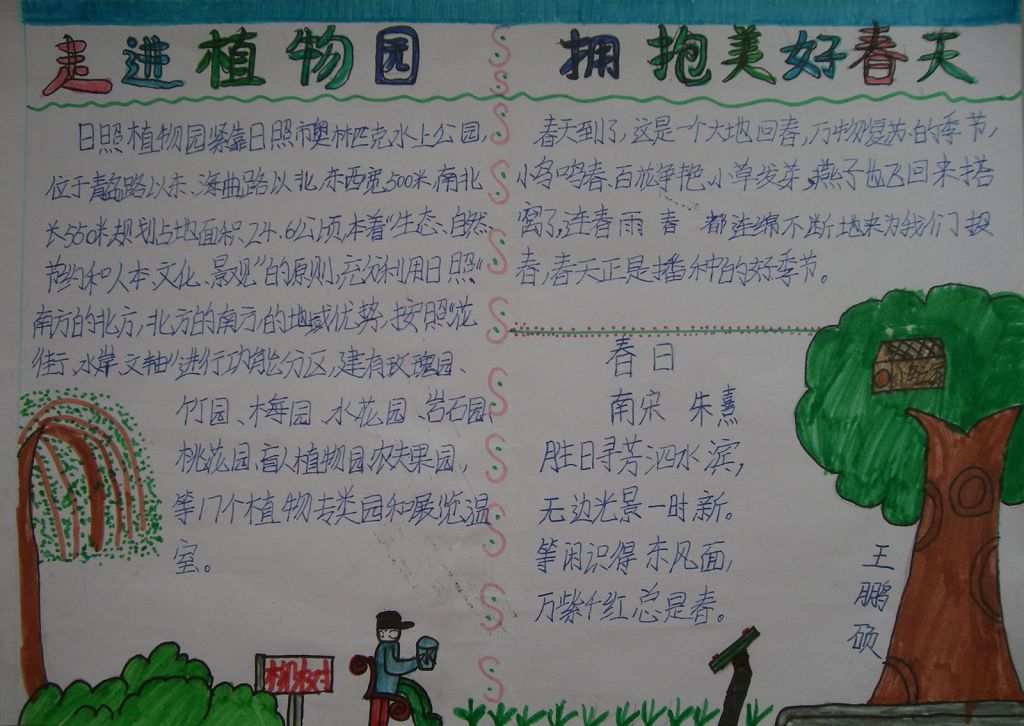 走进植物园 拥抱美好春天
日照植物园紧靠日照市奥林匹克水上公园,
位于青岛路以东、海曲路以北,东西宽500米,南北
长550米规划占地面积24.6公顷,本着“生态、自然、
节约和人本、文化、景观”的原则,充分利用日照“
南方的北方,北方的南方”的地域优势,按照“花
街、水岸、文轴”进行功能分区,建有玫瑰园、
竹园、梅园、水花园、岩石园、
桃花园、盲人植物园、农夫果园,
等17个植物专类园和展览温
室。
春天到了,这是一个大地回春,万物复苏的季节,
小鸟鸣春、百花争艳、小草发芽,燕子也飞回来搭
窝了,连春雨 春 都连绵不断地来为我们报
春,春天正是播种的好季节。
春日
南宋 朱熹
胜日寻芳泗水滨,
无边光景一时新。
等闲识得东风面,
万紫千红总是春。
王鹏硕